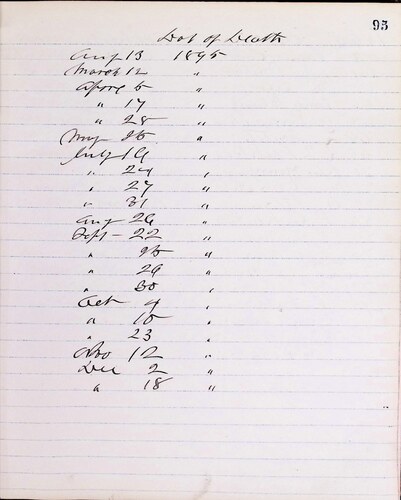 95
Dat of Death
Aug 13 1895
March 12 "
Apre 5 "
" 17 "
" 28 "
May 25 "
July 19 "
" 24 "
" 27 "
" 31 "
Aug 26 "
Sept - 22 "
" 25 "
" 29 "
" 30 "
Oct 4 "
" 10 "
" 23 "
Nvo 12 "
Dec 2 "
" 18 "